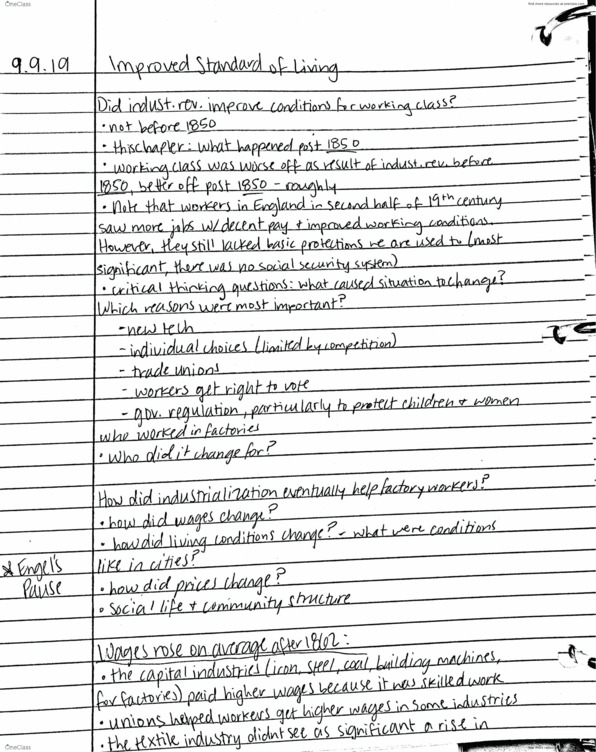 OneClass
find more resources at oneclass.com
9.9.19
Improved Standard of Living
Did indust. rev. improve conditions for working class?
• not before 1850
• this chapter: what happened post 1850
• working class was worse off as result of indust. rev. before
1850, better off post 1850 - roughly
• Note that workers in England in second half of 19th century
saw more jobs w/ decent pay + improved working conditions.
However, they still lacked basic protections we are used to (most
significant, there was no social security system)
• critical thinking questions: what caused situation to change?
Which reasons were most important?
- new tech
- individual choices (limited by competition)
- trade unions
- workers get right to vote
- gov. regulation, particularly to protect children + women
who worked in factories
• Who did it change for?
How did industrialization eventually help factory workers?
• how did wages change?
• how did living conditions change? - what were conditions
like in cities?
* Engel's
Pause
• how did prices change?
• social life + community structure
Wages rose on average after 1862:
• the capital industries (iron, steel, coal, building machines,
for factories) paid higher wages because it was skilled work
• unions helped workers get higher wages in some industries
• the textile industry didnt see as significant a rise in
OneClass